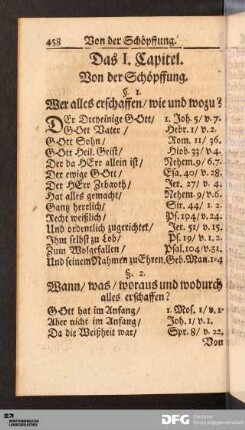 458 Von der Schöpffung.
Das I. Capitel.
Von der Schöpffung.
§. 1.
Wer alles erschaffen/ wie und wozu?
DEr Dreyeinige GOtt/ 1. Joh. 5/ v. 7.
GOtt Vater/ Hebr. 1/ v. 2.
GOtt Sohn/ Rom. 11/ 36.
GOtt Heil. Geist/ Hiob. 33/ v. 4.
Der da HErr allein ist/ Nehem. 9/ 6.7.
Der ewige GOtt/ Esa. 40/ v. 28.
Der HErr Zebaoth/ Jer. 27/ v. 4.
Hat alles gemacht/ Nehem. 9/ v. 6.
Gantz herrlich/ Sir. 44/ 1. 2.
Recht weißlich/ Ps. 104/ v. 24.
Und ordentlich zugerichtet/ Jer. 51/ v. 15.
Ihm selbst zu Lob/ Ps. 19/ v. 1. 2.
Zum Wolgefallen/ Psal. 104/ v. 31.
Und seinem Nahmen zu Ehren. Geb. Man. 1.4
§. 2.
Wann/ was/ woraus und wodurch
alles erschaffen?
GOtt hat im Anfang/ 1. Mos. 1/ v. 1.
Aber nicht im Anfang/ Joh. 1/ v. 1.
Da die Weißheit war/ Spr. 8/ v. 22.
Von
WÜRTTEMBERGISCHE LANDESBIBLIOTHEK
DFG Deutsche Forschungsgemeinschaft